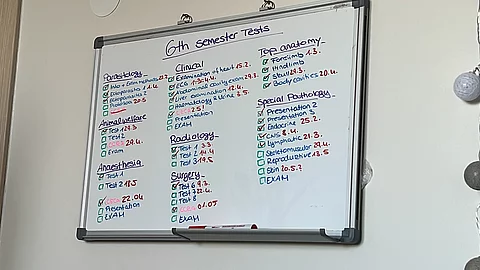 6th Semester Tests
Parasitology
Intro + Exam methods
Ectoparasites 1.4.
Endoparasites 2
Protozoa 20.5
Animal welfare
Test 1 29.3
Test 2
29.4.
Exam
Anaesthesia
Test 1
Test 2 18.5
22.04
Presentation
EXAM
Clinical
Examination of heart 15.2.
ECG 1.3.
Abdominal cavity exam 29.3.
Liver examination 12.4.
Haematology & Urine 3.5.
Presentation
EXAM
Radiology
Test 1 3.3
Test 2 14.4
Test 3 19.5
Surgery
Test 6 9.3.
Test 7 22.4.
Test 8
01.05
EXAM
Top. anatomy
Forelimb 1.3.
Hindlimb
Skull 29.3.
Body cavities 20.4.
Special Pathology
Presentation 2
Presentation 3
Endocrine 25.2.
CNS 8.4.
Lymphatic 21.3.
Skeletomuscular 29.4.
Reproductive 13.5
Skin 20.5.?
EXAM